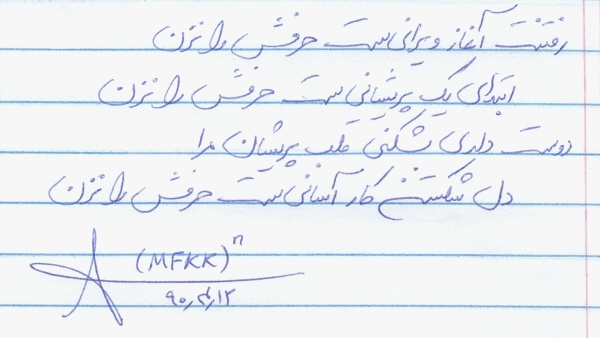 رفتنت آغاز ویرانی ست حرفش را نزن
ابتدای یک پریشانی ست حرفش را نزن
دوست داری بشکنی قلب پریشان مرا
دل شکستن کار آسانی ست حرفش را نزن
(MFKK)ⁿ
۹۰٫۴٫۱۲